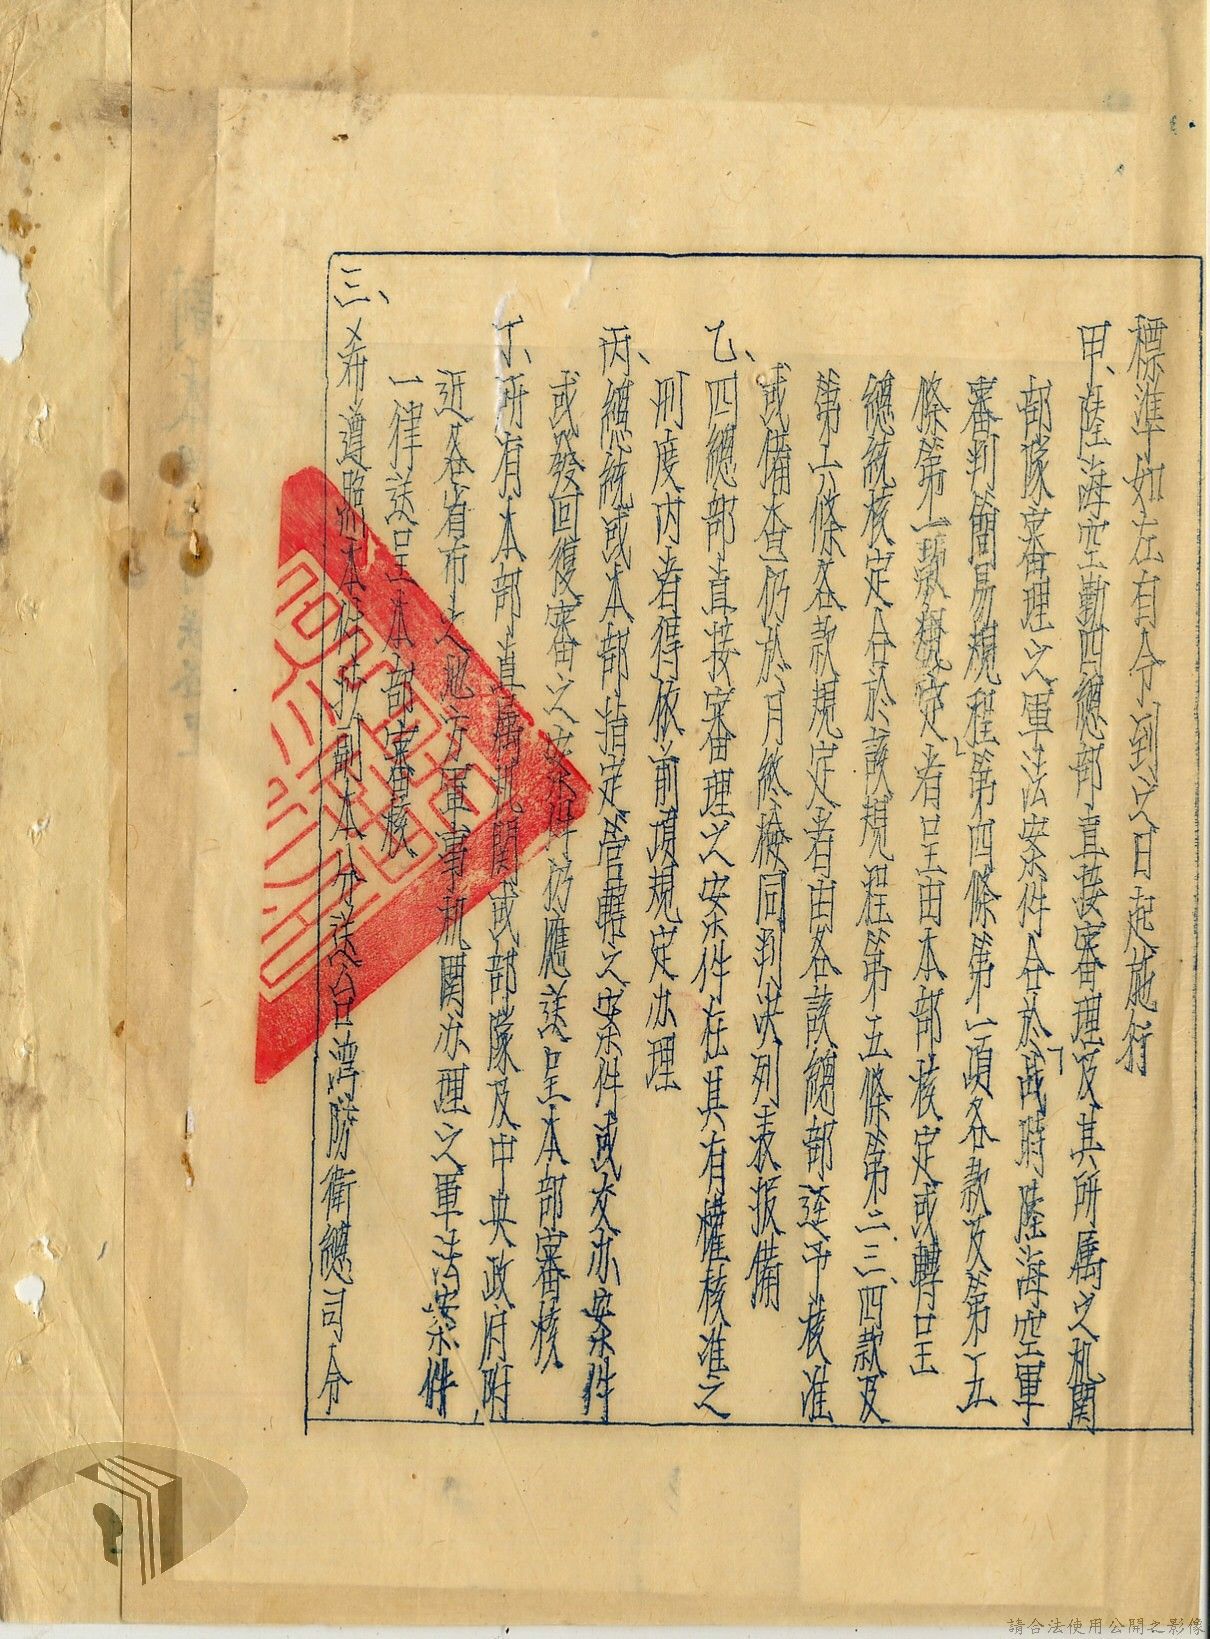 標準如左有令到之日起施行
甲、陸海空勤四總部直接審理及其所属之机関
部隊審理之軍法案件合於「战時陸海空軍
審判簡易規程」第四條第一項各款及第五
條第一款規定者呈由本部核定或轉呈
總統核定合於該規程第五條第二、三、四款及
第六條各款規定者由各該總部逕予核准
或備查仍於月終檢同判决列表报備
乙、四總部直接審理之案件在其有權核准之
刑度内者得依前項規定办理
丙、總統或本部指定管轄之案件或交办案件
或發回復審之案件仍應送呈本部審核
丁、所有本部直属机関或部隊及中央政府附
近各省市之地方軍事机関办理之軍法案件
一律送呈本部審核
三、希遵照本件抄副本分送台灣防衛總司令
請合法使用公開之影像